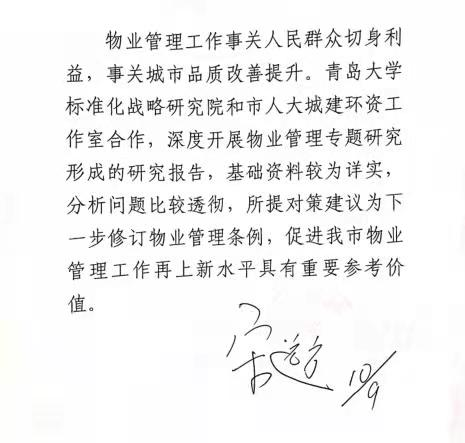 物业管理工作事关人民群众切身利
益，事关城市品质改善提升。青岛大学
标准化战略研究院和市人大城建环资工
作室合作，深度开展物业管理专题研究
形成的研究报告，基础资料较为详实，
分析问题比较透彻，所提对策建议为下
一步修订物业管理条例，促进我市物业
管理工作再上新水平具有重要参考价
值。
10/9